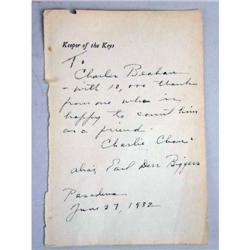 Keeper of the Keys
To
Charles Beahan
- with 10,000 thanks
from one who is
happy to count him
as a friend.
Charlie Chan
alias Earl Derr Biggers
Pasadena
June 27, 1932